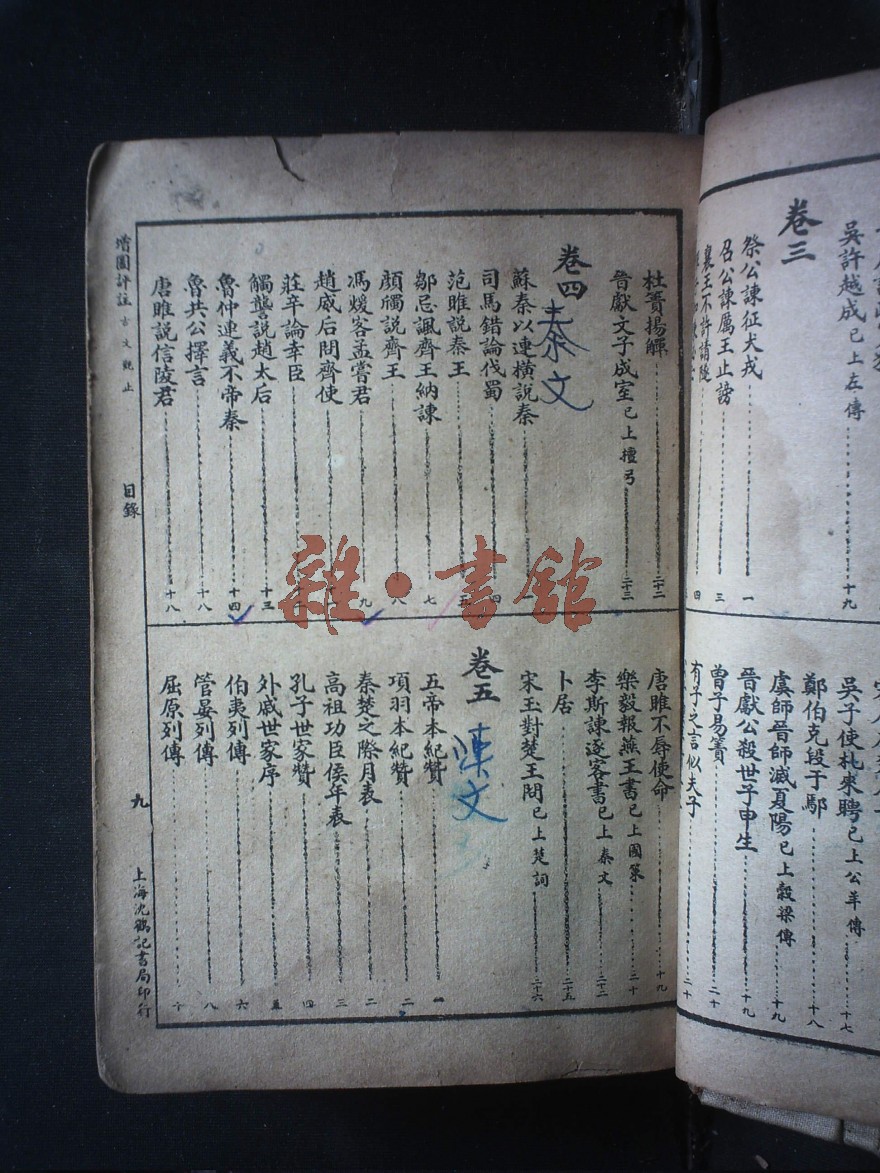 吳許越成已上左傳 十九
卷三
祭公諫征犬戎 一
召公諫厲王止謗 三
襄王不許請隧 四
吳子使札來聘已上公羊傳 十七
鄭伯克段于鄢 十八
虞師晉師滅夏陽已上穀梁傳
晉獻公殺世子申生 十九
曾子易簀 二十
有子之言似夫子 二十
杜蕢揚觶 二十二
晉獻文子成室已上檀弓 二十三
卷四
秦文
蘇秦以連橫說秦 一
司馬錯論伐蜀 四
范雎說秦王 五
鄒忌諷齊王納諫 七
顏斶說齊王 八
馮煖客孟嘗君 九
趙威后問齊使
莊辛論幸臣
觸讋說趙太后 十三
魯仲連義不帝秦 十四
魯共公擇言 十八
唐雎說信陵君 十八
唐雎不辱使命 十九
樂毅報燕王書已上國策 二十
李斯諫逐客書已上秦文 二十三
卜居 二十五
宋玉對楚王問已上楚詞 二十六
卷五
漢文
五帝本紀贊 一
項羽本紀贊 二
秦楚之際月表 二
高祖功臣侯年表 三
孔子世家贊 四
外戚世家序 五
伯夷列傳 六
管晏列傳 八
屈原列傳 十
增圖評註古文觀止
目錄
九
上海沈鶴記書局印行
雜·書館